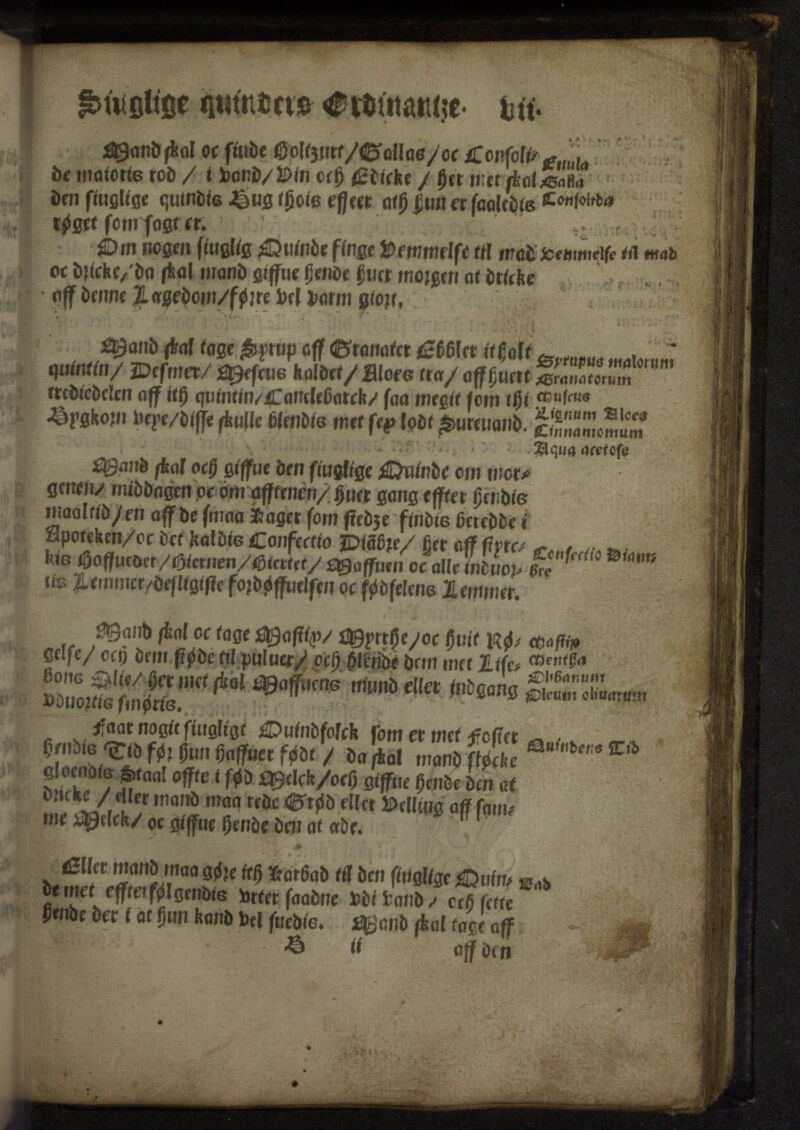 Siuglige quinders Ordinantze. vii.
Mand skal oc siude Holtzurt/Gallas/oc Consoli- Enula
de maioris rod / i Vand/Vin och Edicke / her met skal Galla
den siuglige quindis Hug ihois effter ath hun er saaledis Consolida
røget som sagt er.
Om nogen siuglig Quinde finge Vemmelse til mad Vemmelse til mad
oc dricke/da skal mand giffue hende huer morgen at dricke
aff denne Lagedom/førre vel varm giort,
Mand skal tage Syrup aff Granater Ebblet it halt Syrupus malorum
quintin/ Desmer/ Meseus kaldet/ Aloes tra/ aff huert Granatorum
trediedelen aff ith quintin/Canelebarck/ saa megit som thi Muscus
Bygkorn veye/disse skulle blendis met sex lodt Sureuand. Lignum Aloes
Cinnamomum
Aqua acetose
Mand skal och giffue den siuglige Quinde om mor-
genen/ middagen oc om afftenen/ huer gang effter hendis
maaltid/en aff de smaa Kager som stedze findis beredde i
Apoteken/oc det kaldis Confectio Diabre/ her aff styrc- Confectio Diam-
kis Hoffuedet/Hiernen/Hiertet/Maffuen oc alle induor- bre
tis Lemmer/desligiste fordøffuelsen oc fødselens Lemmer.
Mand skal oc tage Mastix/ Myrthe/oc huit Rø- Mastix
gelse/ och dem støde til puluer/ och blende dem met Lise- Mentha
bons Olie/ her met skal Maffuens mund eller indgang Olibanum
vduortis smøris. Oleum oliuarum
Faar nogit siugligt Quindfolck som er met Foster
hendis Tid før hun haffuer født / da skal mand sløcke Quinders Tid
gloendis Staal offte i sød Melck/och giffue hende den at
dricke / eller mand maa rede Grød eller Velling aff sam-
me Melck/ oc giffue hende den at æde.
Eller mand maa gøre ith Karbad til den siuglige Quin- Bad
de met effterfølgendis vrter saadne vdi Vand / och sette
hende der i at hun kand vel suedis. Mand skal tage aff
B ii aff den